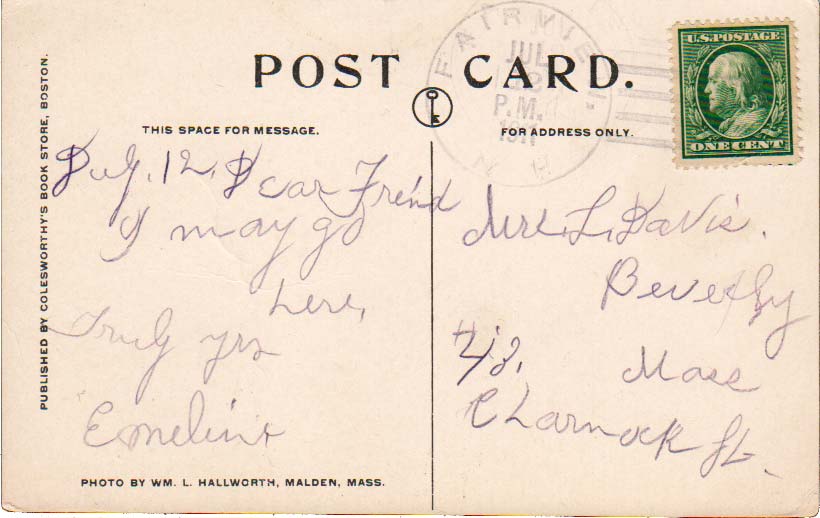 POST CARD.
THIS SPACE FOR MESSAGE.
FOR ADDRESS ONLY.
PUBLISHED BY COLESWORTHY'S BOOK STORE, BOSTON.
FAIRVIEW
JUL
12
P.M.
1911
N H
U.S. POSTAGE
ONE CENT
July. 12, Dear Freind
I may go
here,
Truly yrs
Emeline
Mrs. L. Davis.
Beverly
Mass
Charnock St.
PHOTO BY WM. L. HALLWORTH, MALDEN, MASS.